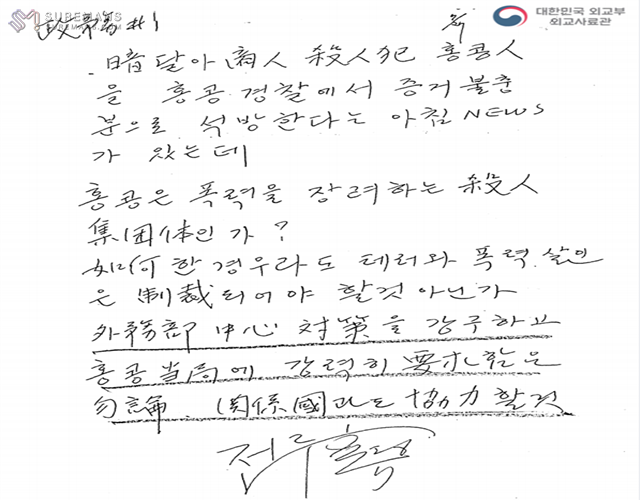 SUREMANS
대한민국 외교부
외교사료관
政務#1
달아 商人 殺人犯 홍콩人
을 홍콩 경찰에서 증거 불충
분으로 석방한다는 아침 NEWS
가 있는데
홍콩은 폭력을 장려하는 殺人
集団体인가?
如何한 경우라도 테러와 폭력 살인
은 制裁되어야 할것 아닌가
外務部 中心 対策을 강구하고
홍콩当局에 강력히 要求함은
勿論 関係國과도 協力할것
전두환